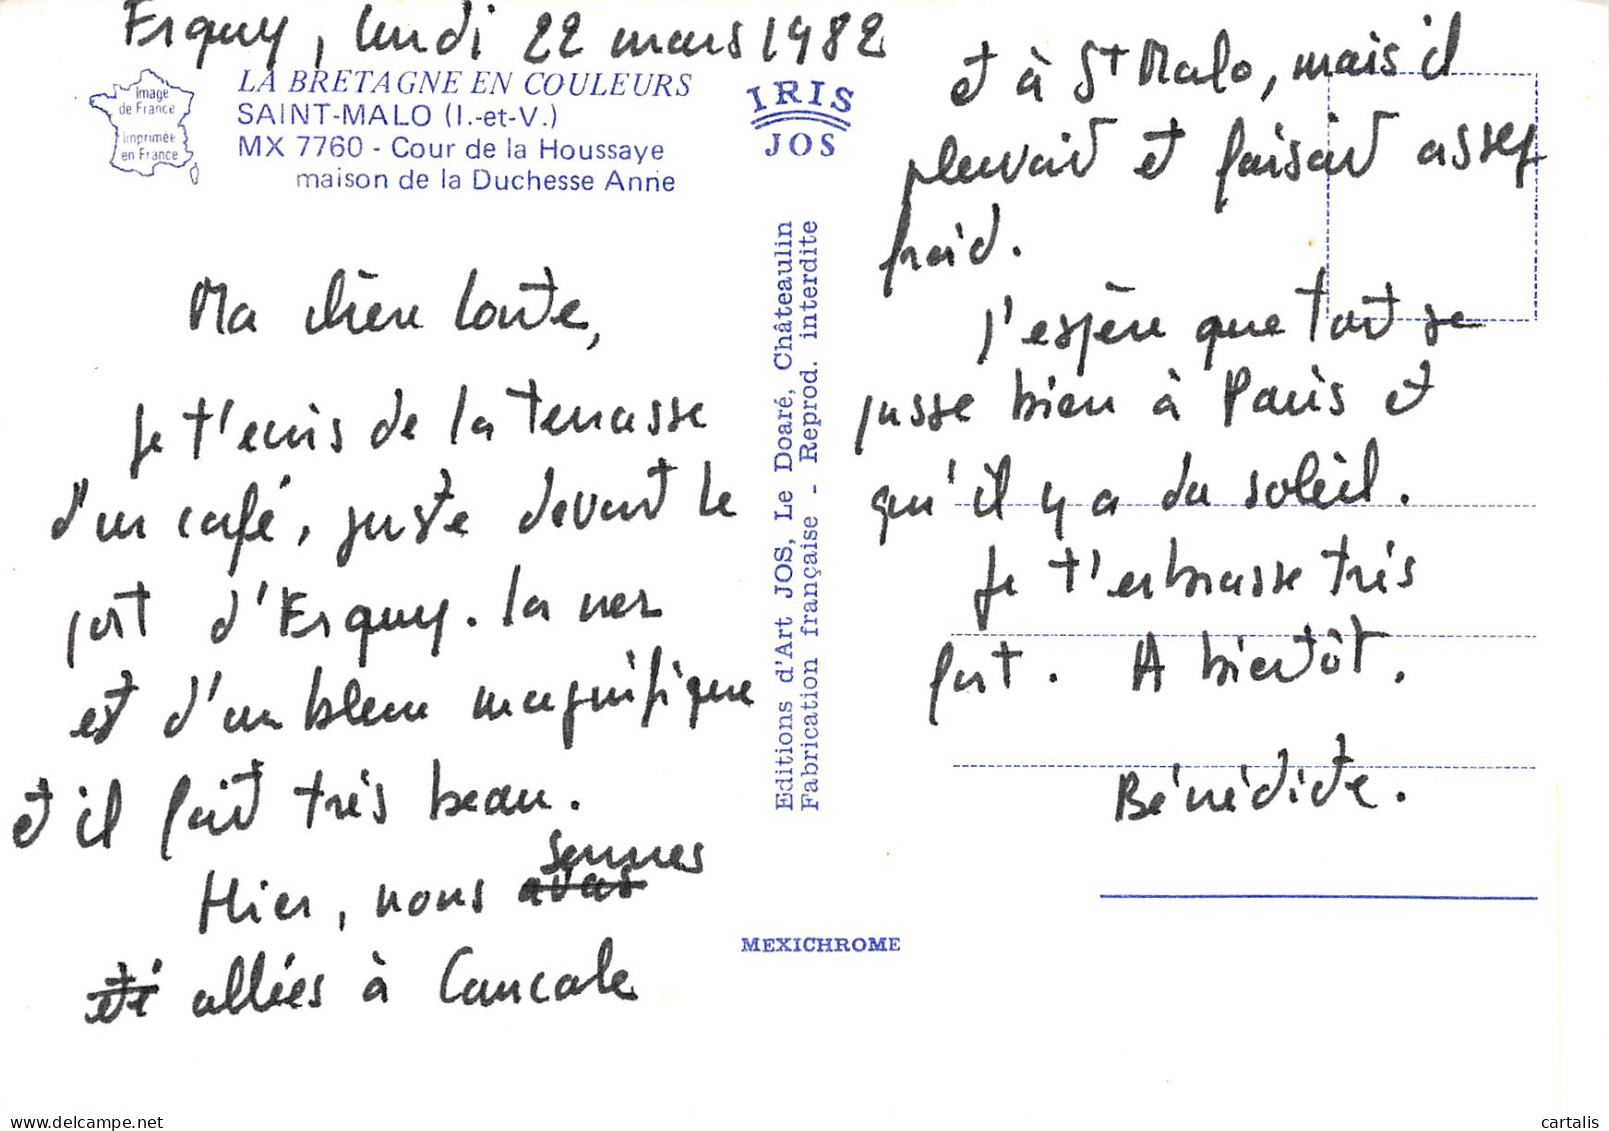 Erquy, lundi 22 mars 1982
Image
de France
imprimée
en France
LA BRETAGNE EN COULEURS
SAINT-MALO (I.-et-V.)
MX 7760 - Cour de la Houssaye
maison de la Duchesse Anne
IRIS
JOS
Ma chère
je t'écris de la terrasse
d'un café, juste devant le
port d'Erquy. la mer
est d'un bleu magnifique
et il fait très beau.
Hier, nous sommes
allées à Cancale
Editions d'Art JOS, Le Doaré, Châteaulin
Fabrication française - Reprod. interdite
MEXICHROME
et à St Malo, mais il
pleuvait et faisait assez
froid.
J'espère que tout se
passe bien à Paris et
qu'il y a du soleil.
Je t'embrasse très
fort. A bientôt.
Bénédicte.
delcampe.net
cartalis